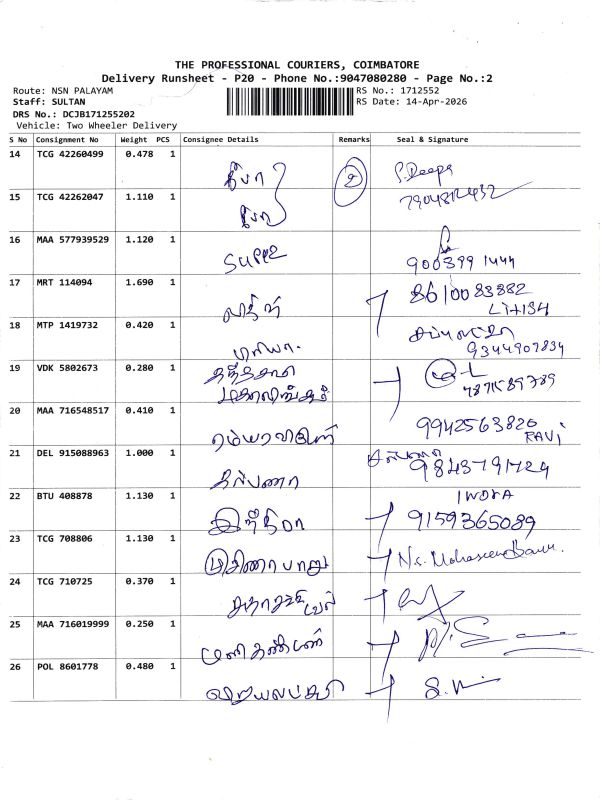 THE PROFESSIONAL COURIERS, COIMBATORE
Delivery Runsheet - P20 - Phone No.:9047080280 - Page No.:2
Route: NSN PALAYAM RS No.: 1712552
Staff: SULTAN RS Date: 14-Apr-2026
DRS No.: DCJB171255202
Vehicle: Two Wheeler Delivery
S No Consignment No Weight PCS Consignee Details Remarks Seal & Signature
14 TCG 42260499 0.478 1 தீபா 2 S. Deepa
15 TCG 42262047 1.110 1 தீபா
16 MAA 577939529 1.120 1 9003991444
17 MRT 114094 1.690 1 8610083382
18 MTP 1419732 0.420 1 பிரியா 9344907834
19 VDK 5802673 0.280 1 மகாலிங்கம்
20 MAA 716548517 0.410 1 9942563820 RAVI
21 DEL 915088963 1.000 1 கல்பனா
22 BTU 408878 1.130 1 இந்திரா INDRA 9159365089
23 TCG 708806 1.130 1
24 TCG 710725 0.370 1
25 MAA 716019999 0.250 1 மணிகண்டன்
26 POL 8601778 0.480 1